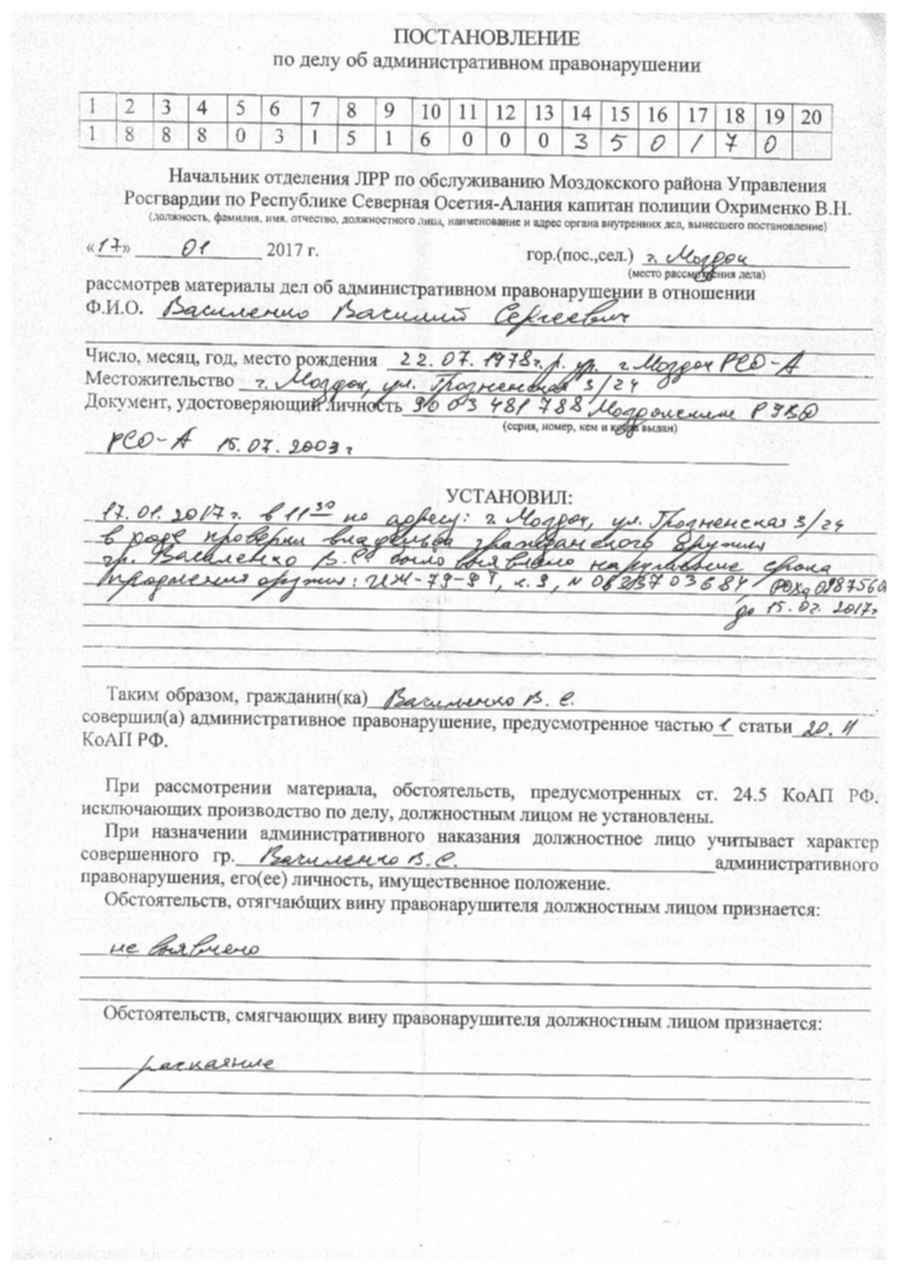 ПОСТАНОВЛЕНИЕ
по делу об административном правонарушении
1 2 3 4 5 6 7 8 9 10 11 12 13 14 15 16 17 18 19 20
1 8 8 8 0 3 1 5 1 6 0 0 0 3 5 0 1 7 0
Начальник отделения ЛРР по обслуживанию Моздокского района Управления
Росгвардии по Республике Северная Осетия-Алания капитан полиции Охрименко В.Н.
(должность, фамилия, имя, отчество, должностного лица, наименование и адрес органа внутренних дел, вынесшего постановление)
«17» 01 2017 г. гор.(пос.,сел.) г. Моздок
(место рассмотрения дела)
рассмотрев материалы дел об административном правонарушении в отношении
Ф.И.О. Василенко Василий Сергеевич
Число, месяц, год, место рождения 22.07.1978г.р. ур. г. Моздок РСО-А
Местожительство г. Моздок, ул. Грозненская 3/24
Документ, удостоверяющий личность 9003 481 788 Моздокским РОВД
(серия, номер, кем и когда выдан)
РСО-А 15.07.2003 г
УСТАНОВИЛ:
17.01.2017г. в 11 30 по адресу: г. Моздок, ул. Грозненская 3/24
в ходе проверки владельца гражданского оружия
гр. Василенко В.С. было выявлено нарушение срока
продления оружия: ИЖ-79-9Т, к. 9, N 0633703684, РОХа
до 15.02.2017г
Таким образом, гражданин(ка) Василенко В. С.
совершил(а) административное правонарушение, предусмотренное частью 1 статьи 20.11
КоАП РФ.
При рассмотрении материала, обстоятельств, предусмотренных ст. 24.5 КоАП РФ.
исключающих производство по делу, должностным лицом не установлены.
При назначении административного наказания должностное лицо учитывает характер
совершенного гр. Василенко В. С. административного
правонарушения, его(ее) личность, имущественное положение.
Обстоятельств, отягчающих вину правонарушителя должностным лицом признается:
не выявлено
Обстоятельств, смягчающих вину правонарушителя должностным лицом признается:
раскаяние